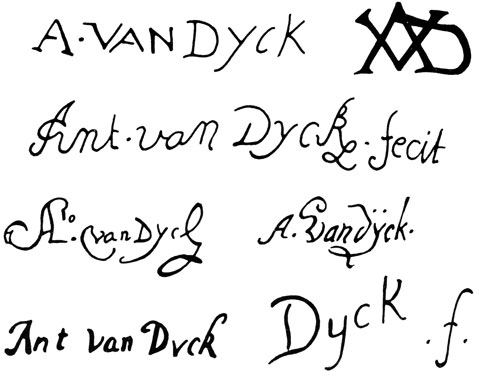 A·VAN DYCK AVD
Ant·van Dyck·fecit
Ao·van Dyck A.vandÿck·
Ant van Dyck Dyck .f.